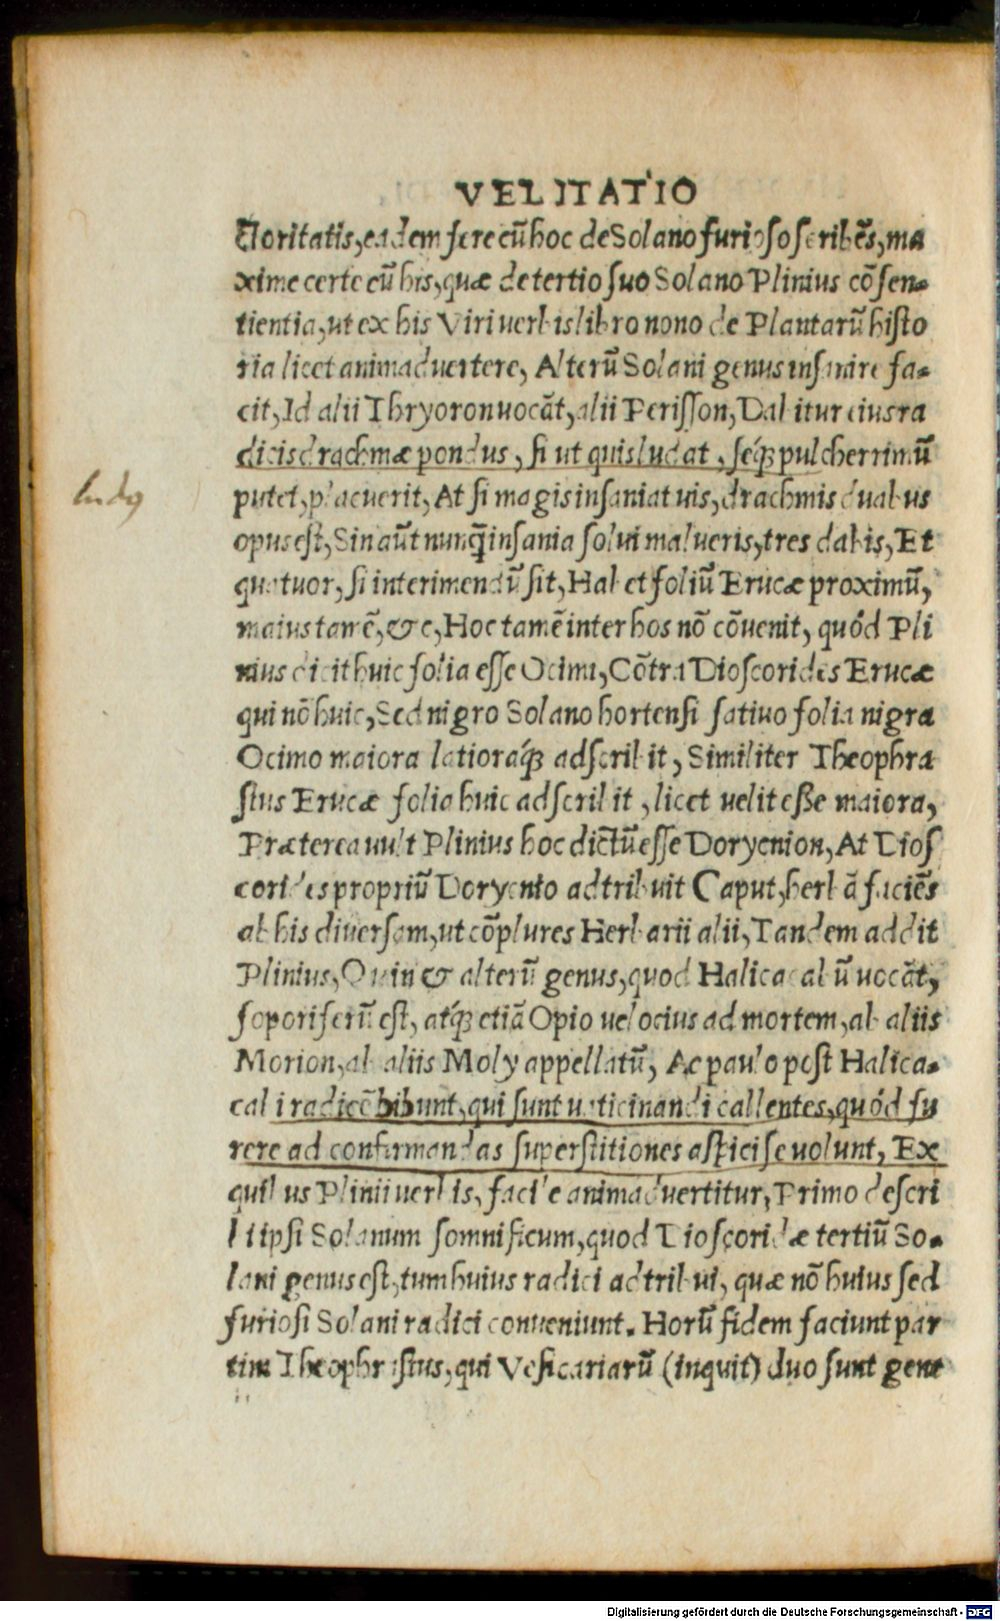 VELITATIO
ctoritatis, eadem fere cũ hoc de Solano furioso scribẽs, ma
xime certe cũ his, quæ de tertio suo Solano Plinius cõsen-
tientia, ut ex his Viri uerbis libro nono de Plantarũ histo
ria licet animaduertere, Alterũ Solani genus insanire fa-
cit, Id alii Thryoron uocãt, alii Perisson, Dabitur eius ra
dicis drachmæ pondus, si ut quis ludat, seq́ꝫ pulcherrimũ
putet, placuerit, At si magis insaniat uis, drachmis duabus
ludꝰ
opus est, Sin aũt nunq̃ insania solui malueris, tres dabis, Et
quatuor, si interimendũ sit, Habet foliũ Erucæ proximũ,
maius tamẽ, &c, Hoc tamẽ inter hos nõ cõuenit, quód Pli
nius dicit huic folia esse Ocimi, Cõtra Dioscorides Erucæ
qui nõ huic, Sed nigro Solano hortensi satiuo folia nigra
Ocimo maiora latioraq́ꝫ adscribit, Similiter Theophra
stus Erucæ folia huic adscribit, licet uelit eße maiora,
Præterea uult Plinius hoc dictũ esse Dorycnion, At Dios
corides propriũ Dorycnio adtribuit Caput, herbã faciẽs
ab his diuersam, ut cõplures Herbarii alii, Tandem addit
Plinius, Quin & alterũ genus, quod Halicacabũ uocãt,
soporiferũ est, atq́ꝫ etiã Opio uelocius ad mortem, ab aliis
Morion, ab aliis Moly appellatũ, Ac paulo post Halica-
cabi radicẽ bibunt, qui sunt uaticinandi callentes, quód fu
rere ad confirmandas superstitiones aspici se uolunt, Ex
quibus Plinii uerbis, facile animaduertitur, Primo descri
bi ipsi Solanum somnificum, quod Dioscoridæ tertiũ So-
lani genus est, tum huius radici adtribui, quæ nõ huius sed
furiosi Solani radici conueniunt. Horũ fidem faciunt par
tim Theophrastus, qui Vesicariarũ (inquit) duo sunt gene
Digitalisierung gefördert durch die Deutsche Forschungsgemeinschaft - DFG